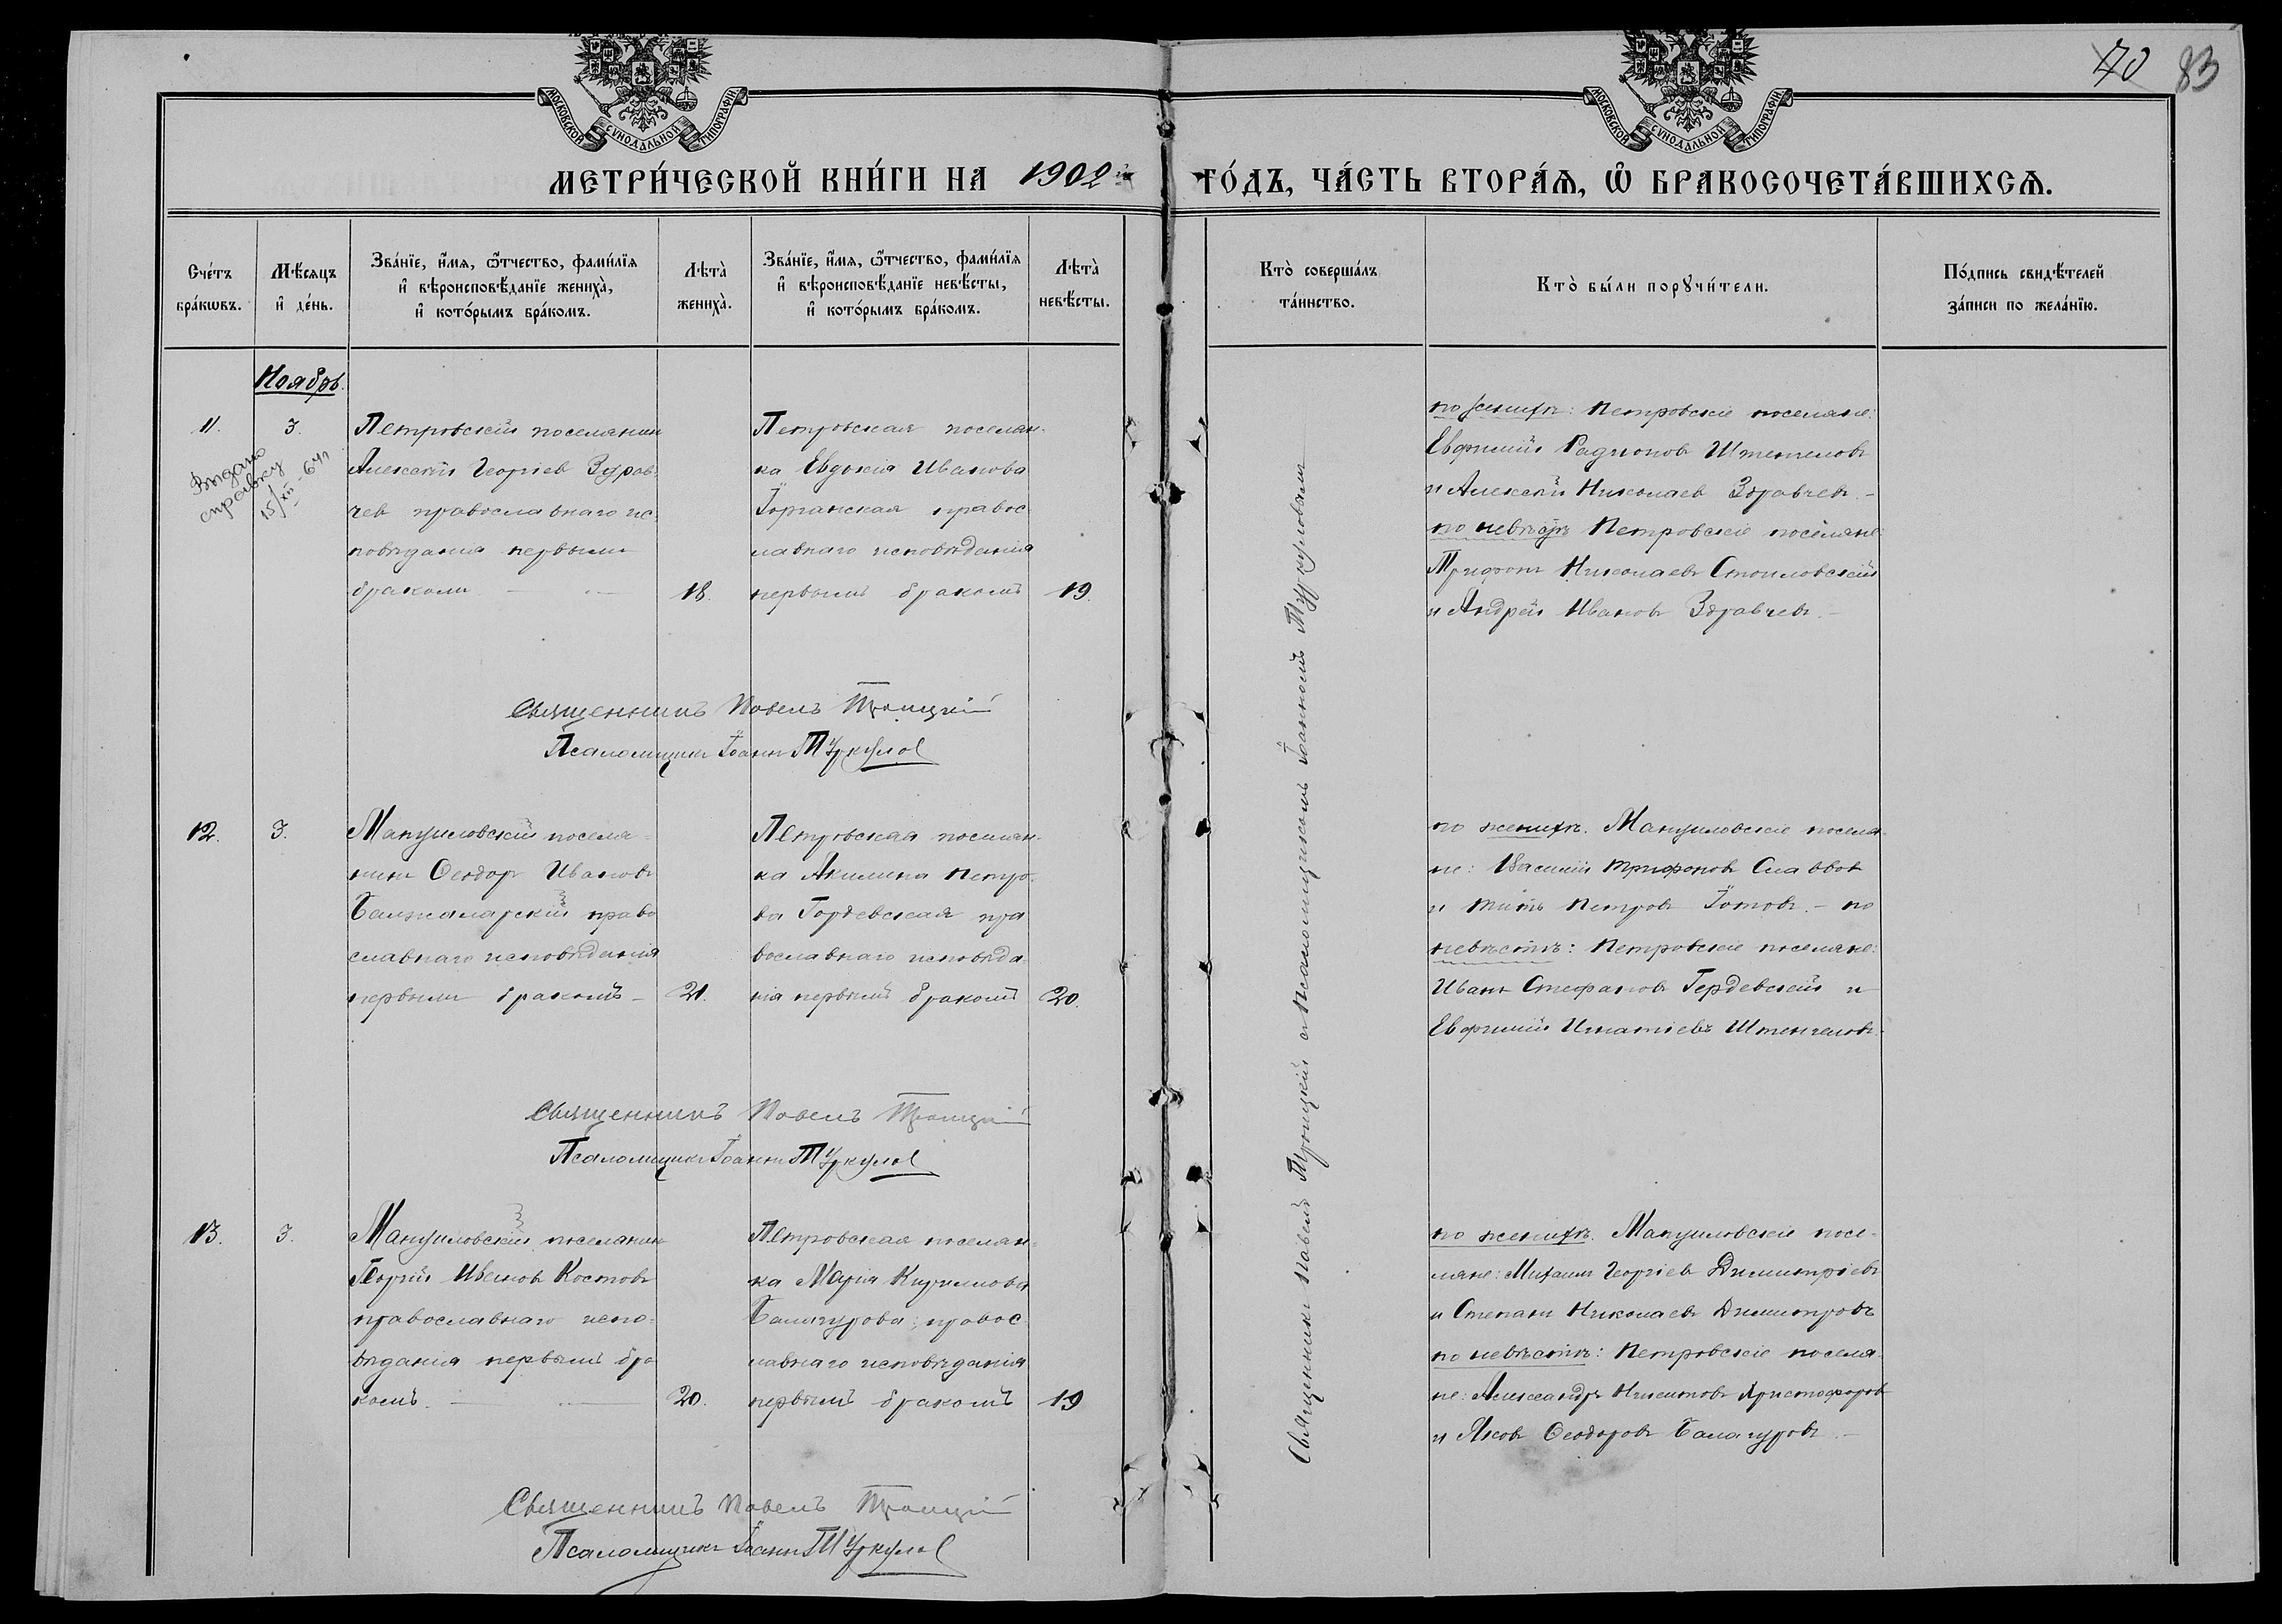 70 83
МОСКОВСКОЙ СѴНОДАЛЬНОЙ ТИПОГРАФІИ
МОСКОВСКОЙ СѴНОДАЛЬНОЙ ТИПОГРАФІИ
МЕТРИ́ЧЕСКОЙ КНИ́ГИ НА 1902й ГО́ДЪ, ЧА́СТЬ ВТОРА́Ѧ, Ѽ БРАКОСОЧЕТА́ВШИХСѦ.
Сче́тъ бра́кѡвъ.
Мѣ́сяцъ и҆ де́нь.
Зва́нїе, и҆́мѧ, ѻ҆́тчество, фами́лїѧ
и҆ вѣроисповѣ́данїе женихà,
и҆ кото́рымъ бра́комъ.
Лѣтà женихà.
Зва́нїе, и҆́мѧ, ѻ҆́тчество, фами́лїѧ
и҆ вѣроисповѣ́данїе невѣ́сты,
и҆ кото́рымъ бра́комъ.
Лѣтà невѣ́сты.
Ктò соверша́лъ та́инство.
Ктò бы́ли порꙋчи́тели.
По́дпись свидѣ́телей за́писи по жела́нїю.
Ноябрь.
11.
3.
Выдано
справку
15/XII-64г
Петровскій поселянин
Алексѣй Георгіев Здрав-
чев православнаго ис-
повѣданія первымъ
бракомъ
18.
Петровская поселян-
ка Евдокія Иванова
Іорганская правос
лавнаго исповѣданія
первымъ бракомъ
19.
по женихѣ: Петровскіе поселяне:
Евфимій Радионовъ Штенгеловъ
и Алексѣй Николаевъ Здравчевъ. -
по невѣстѣ Петровскіе поселяне:
Трифонъ Николаевъ Стоиловскій
и Андрей Ивановъ Здравчевъ. -
Священникъ Павелъ Троицкій
Псаломщикъ Іоаннъ Туркулов
12.
3.
Мануиловскій поселя-
нинъ Ѳеодоръ Ивановъ
право
славнаго исповѣданія
первымъ бракомъ -
21.
Петровская поселян-
ка Акилина Петро-
ва Гердевская пра
вославнаго исповѣда-
нія первымъ бракомъ
20.
по женихѣ. Мануиловскіе поселя-
не: Василій Трифоновъ Славовъ
и Титъ Петровъ Іотовъ. - по
невѣстѣ: Петровскіе поселяне:
Иванъ Стефановъ Гердевскій и
Евфимій Игнатіевъ Штенгеловъ.
Священникъ Павелъ Троицкій
Псаломщикъ Іоаннъ Туркулов
13.
3.
Мануиловскій поселянин
Георгій Ивановъ Костовъ
православнаго испо-
вѣданія первымъ бра
комъ.
20.
Петровская поселян-
ка Марія Кириллова
Балагурова, правос
лавнаго исповѣданія
первымъ бракомъ
19
по женихѣ. Мануиловскіе посе-
ляне: Михаилъ Георгіев Димитріевъ
и Степанъ Николаевъ Димитровъ
по невѣстѣ: Петровскіе поселя-
не: Александръ Никитовъ Христофоровъ
и Яковъ Ѳеодоровъ Балагуровъ. -
Священникъ Павелъ Троицкій
Псаломщикъ Іоаннъ Туркулов
Священникъ Павелъ Троицкій съ псаломщикомъ Іоанномъ Туркуловымъ